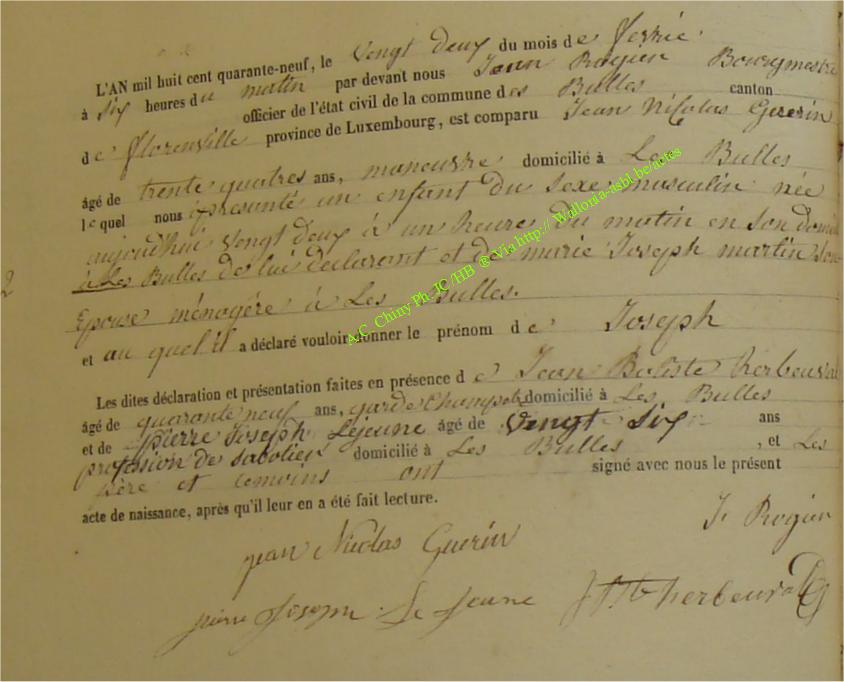 L'AN mil huit cent quarante-neuf, le vengt deux du mois de fevrié
à six heures du matin par devant nous Jean Rogien Bourgmestre
officier de l'état civil de la commune des Bulles canton
de florenville province de Luxembourg, est comparu Jean Nicolas Guerin
âgé de trente quatres ans, maneuvre domicilié à Les Bulles
lequel nous a presanté un enfant du sexe musculin née
aujourdhui vengt deux à un heure du matin en son domi
à Les Bulles de lui declarant et de marie Joseph martin son
Epouse ménagére à Les Bulles.
et au quel il a déclaré vouloir donner le prénom de Joseph
Les dites déclaration et présentation faites en présence de Jean Batiste herbeuval
âgé de quarante neuf ans, garde champetr domicilié à Les Bulles
et de pierre Joseph Lejeune âgé de vengt six ans
profession de sabotier domicilié à Les Bulles, et Les
père et temoins ont signé avec nous le présent
acte de naissance, après qu'il leur en a été fait lecture.
J. Rogien
jean Nicolas Guerin
pierre Joseph Le Jeune
herbeuval
2
A.C. Chiny Ph-JC /HB @ Via http:// Wallonia-asbl.be/actes